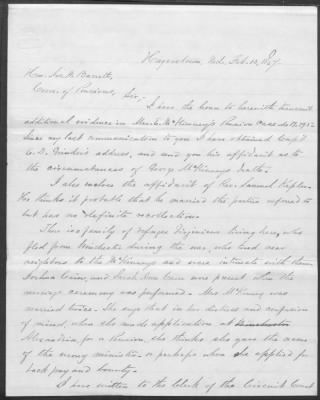 Hagerstown, Md. Feb. 12, 1867.
Hon. Jos. H. Barrett,
Com. of Pensions,
Sir,-
I have the honor to herewith transmit
additional evidence in McKinney's Pension case No.
Since my last communication to you I have obtained Capt
address, and send you his affidavit as to
the circumstances of George McKinney's death.
I also enclose the affidavit of Rev. Samuel Kepler.
He thinks it probable that he married the parties referred to
but has no definite recollection.
There is a family of refugee Virginians living here, who
fled from Winchester during the war, who lived near
neighbors to the McKinneys and were intimate with them
Joshua and Sarah Ann were present when the
marriage ceremony was performed. Mrs. McKinney was
married twice. She says that in her distress and confusion
of mind, when she made application at
Alexandria, for a Pension, she thinks she gave the name
of the wrong minister - or perhaps when she applied for
back pay and bounty.
I have written to the Clerk of the Circuit Court